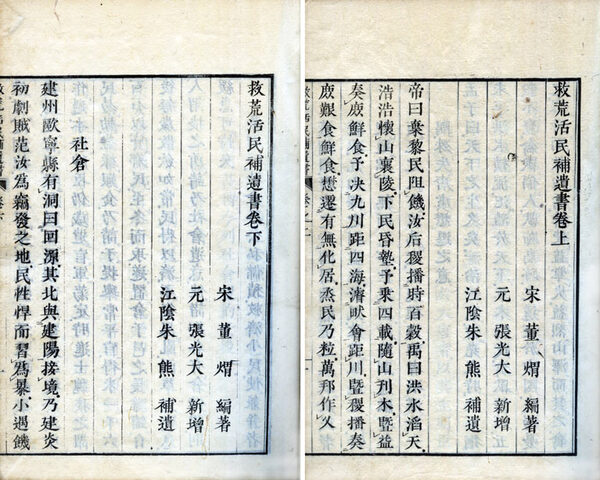 救荒活民補遺書卷上
宋 董 煟 編著
元 張光大 新增
江陰朱 熊 補遺
帝曰棄黎民阻饑汝后稷播時百穀禹曰洪水滔天
浩浩懷山襄陵下民昏墊予乘四載隨山刋木暨益
奏庶鮮食予决九川距四海濬畎澮距川暨稷播奏
庶艱食鮮食懋遷有無化居烝民乃粒萬邦作乂
救荒活民補遺書卷下
宋 董 煟 編著
元 張光大 新增
江陰朱 熊 補遺
社倉
建州歐寧縣有洞曰回源其北與建陽接境乃建炎
初劇賊范汝為竊發之地民性悍而習為暴小遇饑